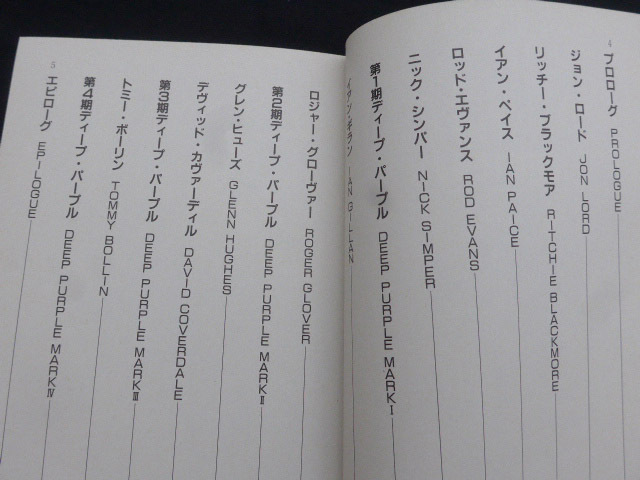 4
プロローグ PROLOGUE
ジョン・ロード JON LORD
リッチー・ブラックモア RITCHIE BLACKMORE
イアン・ペイス IAN PAICE
ロッド・エヴァンス ROD EVANS
ニック・シンパー NICK SIMPER
第1期ディープ・パープル DEEP PURPLE MARKⅠ
イアン・ギラン IAN GILLAN
ロジャー・グローヴァー ROGER GLOVER
第2期ディープ・パープル DEEP PURPLE MARKⅡ
グレン・ヒューズ GLENN HUGHES
デヴィッド・カヴァーディル DAVID COVERDALE
第3期ディープ・パープル DEEP PURPLE MARKⅢ
トミー・ボーリン TOMMY BOLLIN
第4期ディープ・パープル DEEP PURPLE MARKⅣ
エピローグ EPILOGUE
5